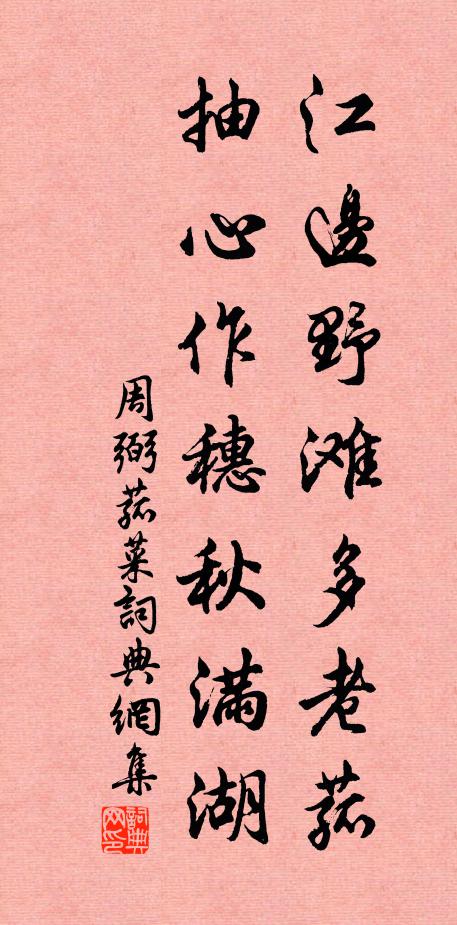 江邊野滩多老菰
抽心作穗秋滿湖
周弼菰菜詞典網集
詞典网印